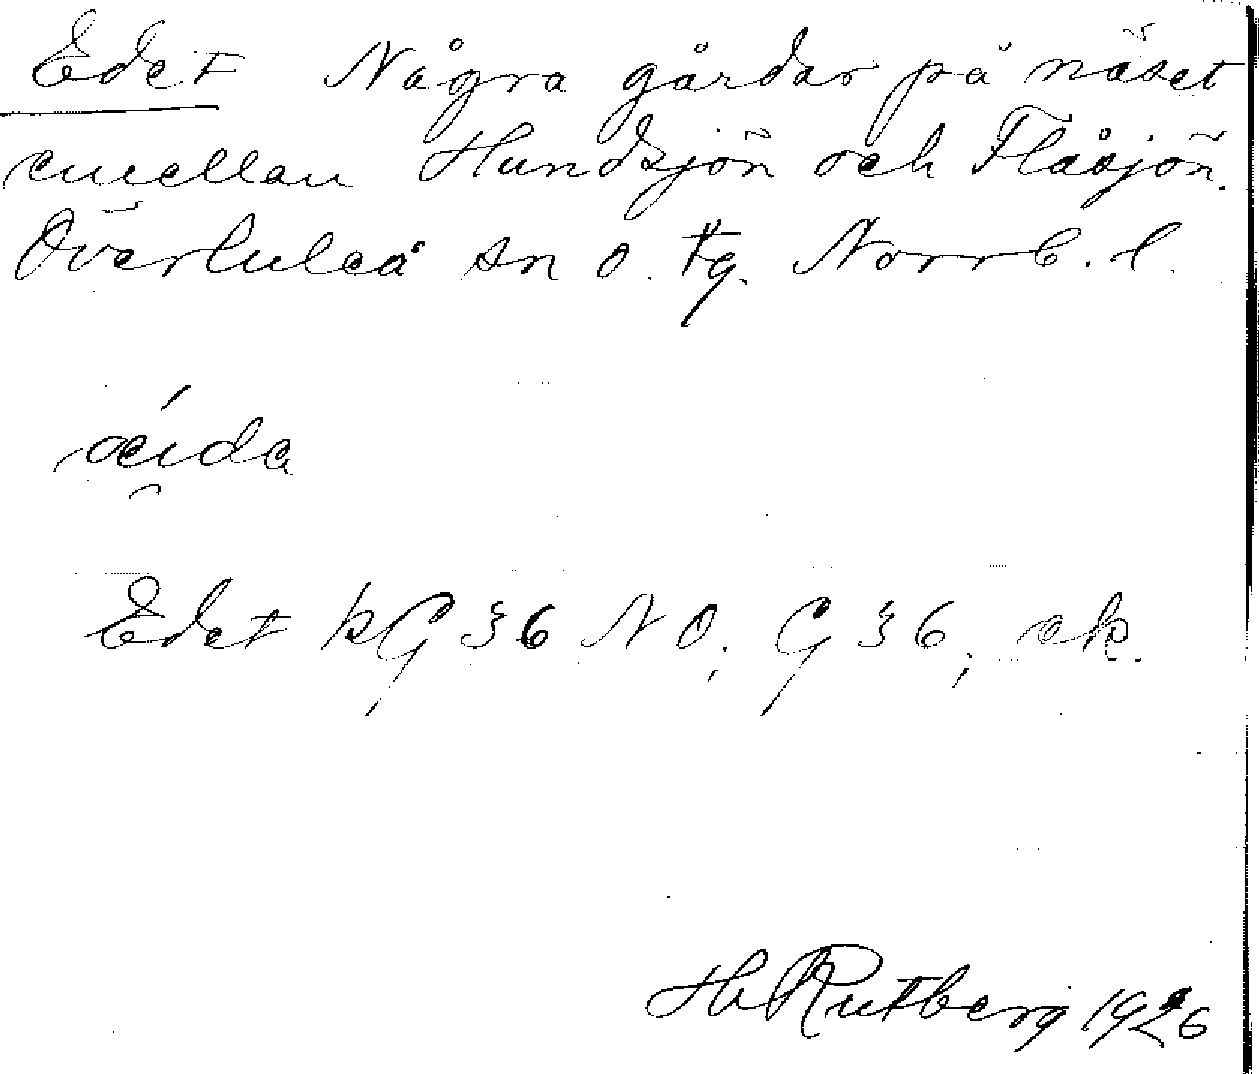 Edet Några gårdar på näset
emellan Hundsjön och Flåsjön.
Överluleå sn o. tg. Norrb. l.
æ̂ída
Edet kG 36 NO; G 36; ek.
Hb Rutberg 1926